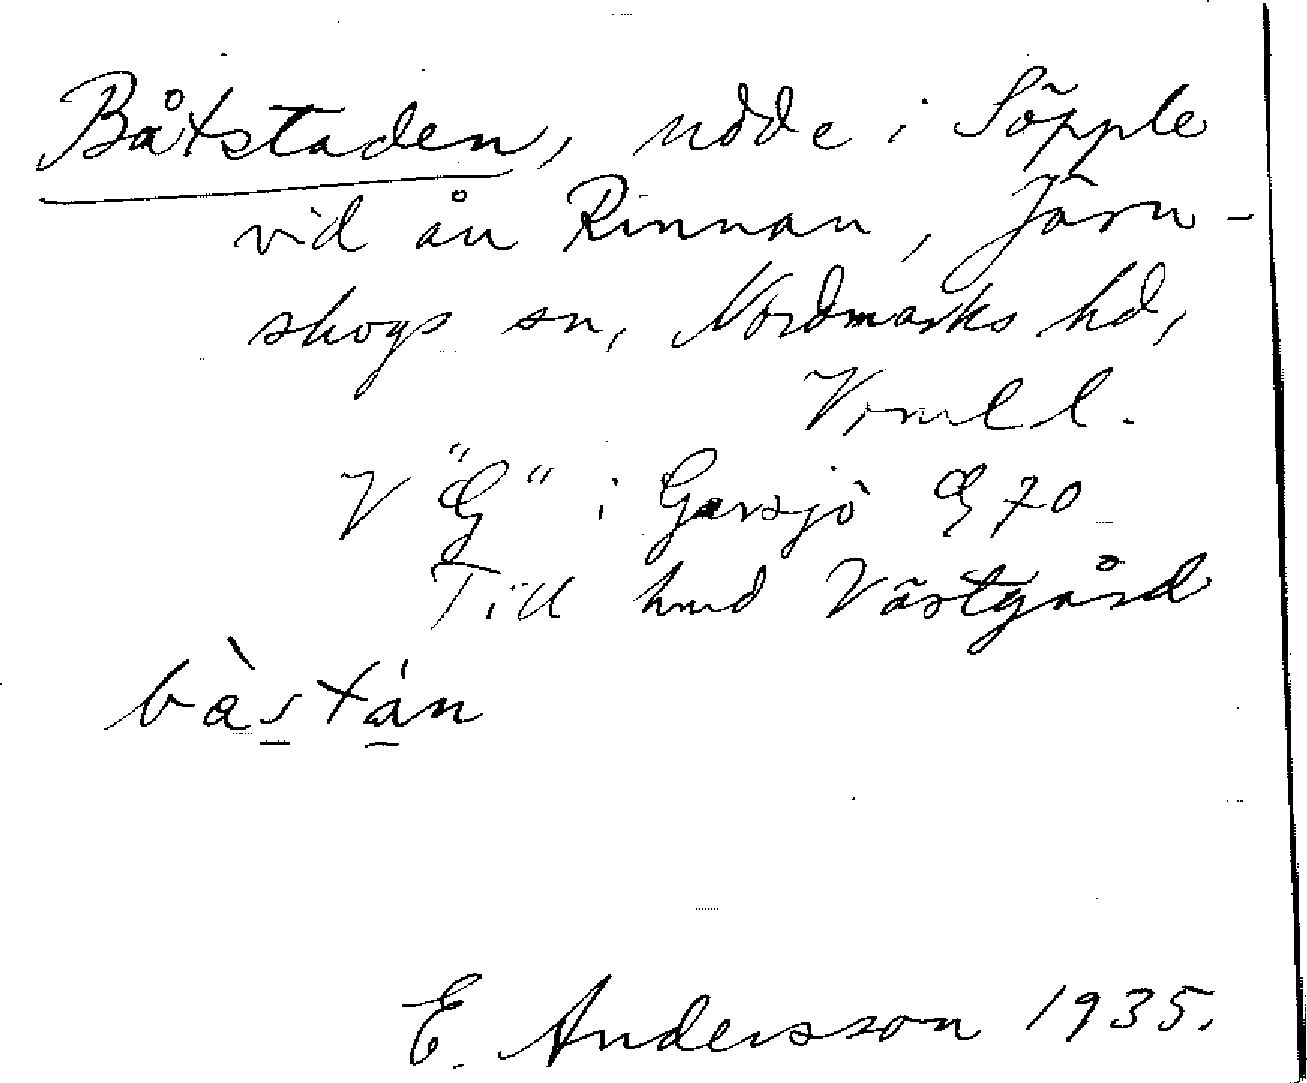 Båtstaden, udde i Söpple
vid ån Rinnan, Järn-
skogs sn, Nordmarks hd,
Vrml l.
V "G" i Gersjö Eg 70
Till hmd Västgård
bàstán
E. Andersson 1935.